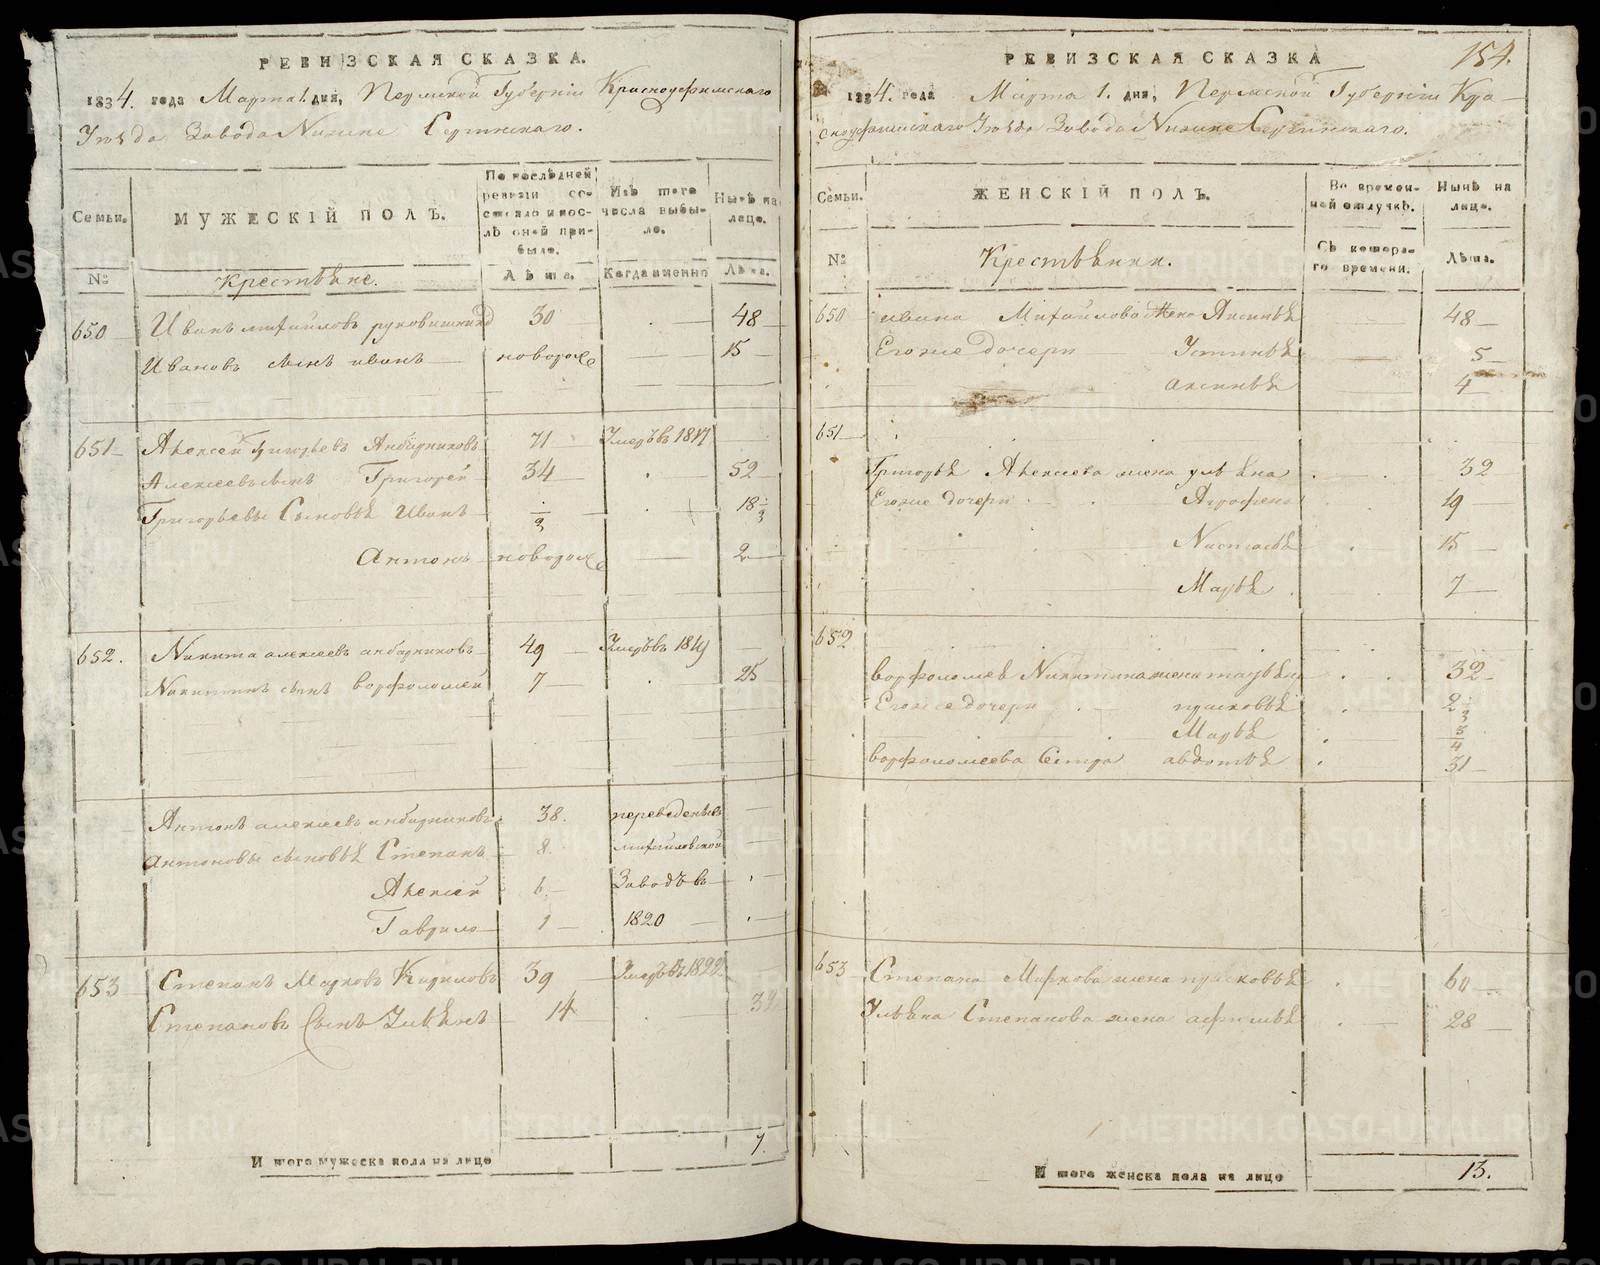 РЕВИЗСКАЯ СКАЗКА.
1834. года Марта 1. дня, Пермской Губерніи Красноуфимскаго
Уѣзда Завода Нижне Сергинскаго.
Семьи.
МУЖЕСКІЙ ПОЛЪ.
По последней ревизіи состояло и послѣ оной прибыло.
Изъ того числа выбыло.
Нынѣ на лицо.
№
Крестьяне.
Лѣта.
Когда именно
Лѣта.
650 Иванъ Михайловъ рукавишник 30 48
Ивановъ сынъ иванъ новорож 15
651 Алексей Григорьевъ Анбарниковъ 71 Умеръ в 1817
Алексеевъ сынъ Григорей 34 52
Григорьевы Сыновья Иванъ 18
Антонъ новорож 2
652. Никита алексеевъ анбарниковъ 49 Умеръ в 1819
Никитинъ сынъ ворфоломей 7 25
Антонъ алексеевъ анбарниковъ 38. переведены въ
антоновы сыновья Степанъ 8. михайловской
Алексей 6 Заводъ в
Гаврило 1 1820
653 Степанъ Марковъ 39 Умеръ в 1822
Степановъ Сынъ Ульянъ 14
Итого мужеска пола на лицо 7.
РЕВИЗСКАЯ СКАЗКА
154.
1834. года Марта 1. дня, Пермской Губерніи Кра-
сноуфимскаго Уѣзда Завода Нижне Сергинскаго.
Семьи.
ЖЕНСКІЙ ПОЛЪ.
Во временной отлучкѣ.
Нынѣ на лицо.
№
Крестьянки.
Съ котораго времени.
Лѣта.
650 ивана Михайлова Жена Аксинья 48
Его же дочери Устинья 5
аксинья 4
651
Григорья Алексеева жена ульяна 32
Его же дочери 19
Настасья 15
Марья 7
652
ворфоломея Никитина жена 32
Его же дочери прасковья
Марья
ворфоломеева Сестра авдотья 31
653 Степана Маркова жена прасковья 60
Ульяна Степанова жена афимья 28
Итого женска пола на лицо 13.
METRIKI.GASO-URAL.RU